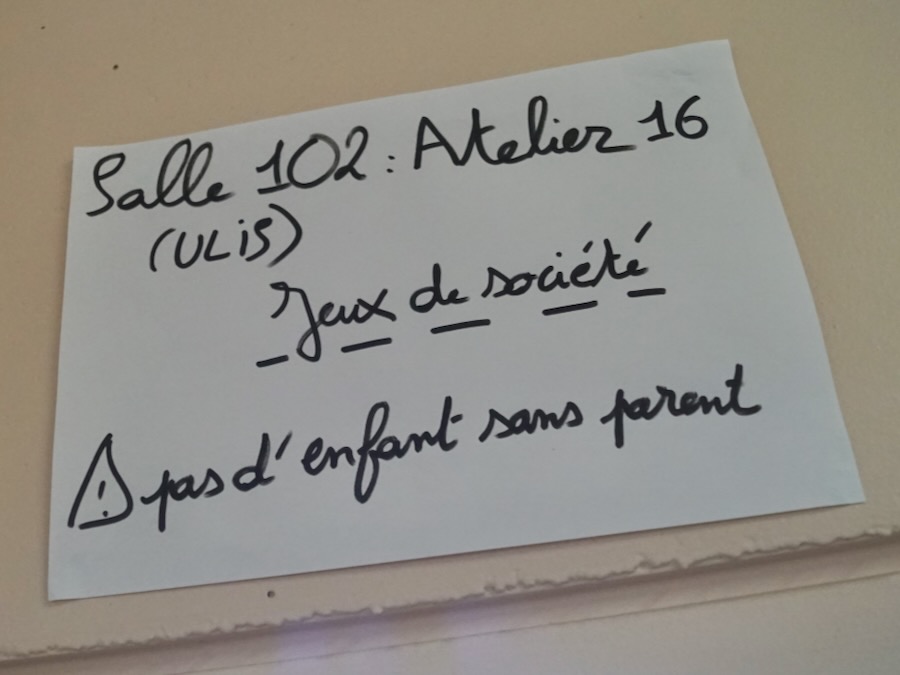 Salle 102 : Atelier 16
(ULiS)
Jeux de société
⚠ pas d'enfant sans parent